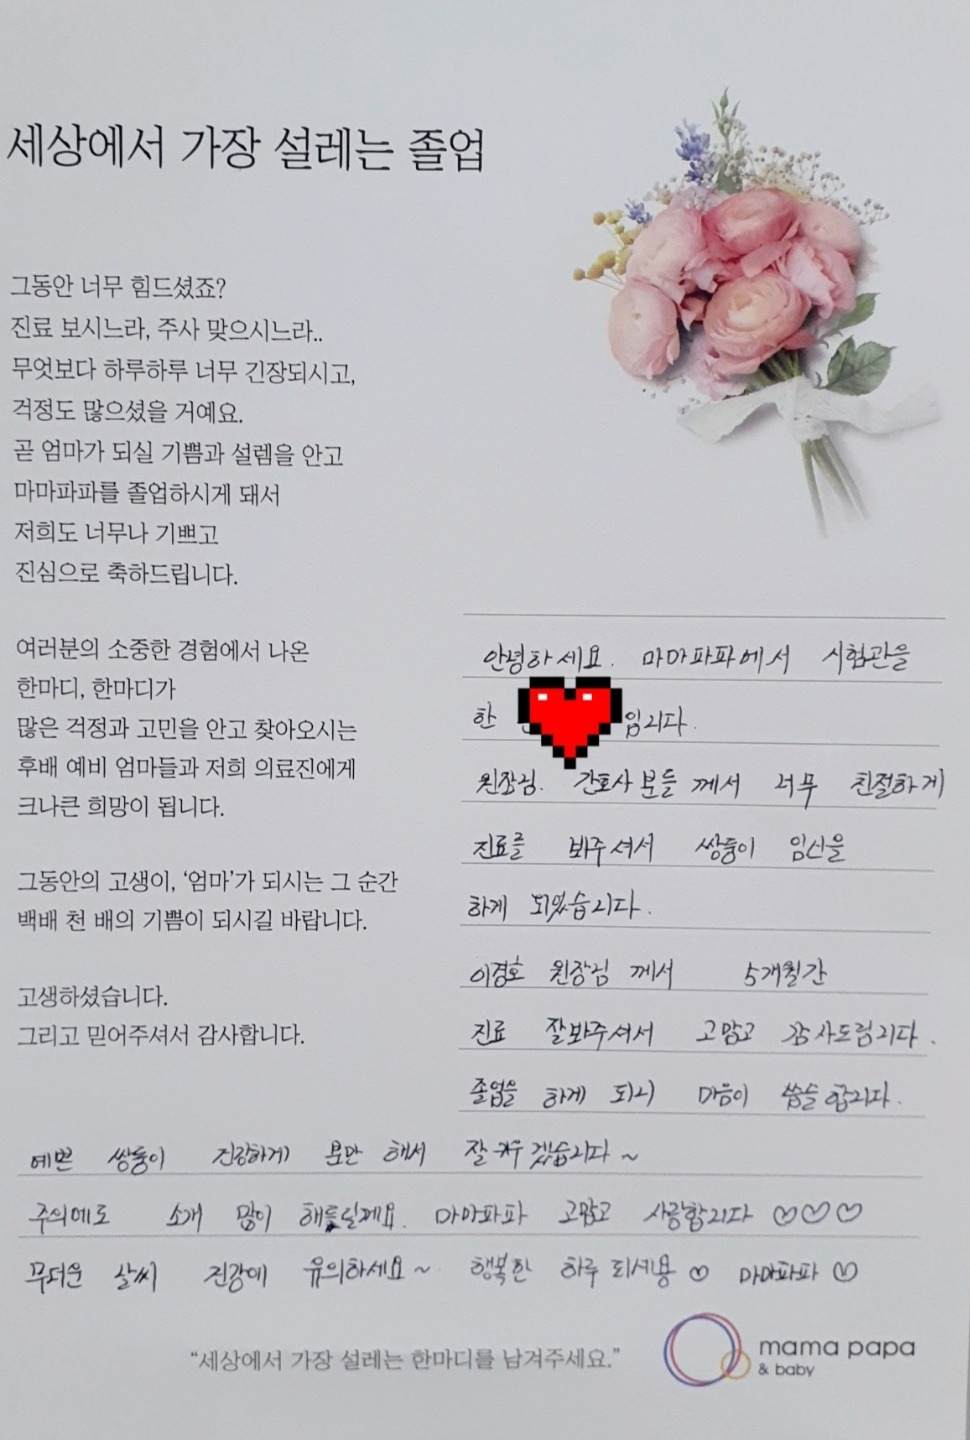 세상에서 가장 설레는 졸업
그동안 너무 힘드셨죠?
진료 보시느라, 주사 맞으시느라..
무엇보다 하루하루 너무 긴장되시고,
걱정도 많으셨을 거예요.
곧 엄마가 되실 기쁨과 설렘을 안고
마마파파를 졸업하시게 돼서
저희도 너무나 기쁘고
진심으로 축하드립니다.
여러분의 소중한 경험에서 나온
한마디, 한마디가
많은 걱정과 고민을 안고 찾아오시는
후배 예비 엄마들과 저희 의료진에게
크나큰 희망이 됩니다.
그동안의 고생이, ‘엄마’가 되시는 그 순간
백배 천 배의 기쁨이 되시길 바랍니다.
고생하셨습니다.
그리고 믿어주셔서 감사합니다.
안녕하세요. 마마파파에서 시험관을
한 입니다.
원장님. 간호사분들 께서 너무 친절하게
진료를 봐주셔서 쌍둥이 임신을
하게 되었습니다.
이경호 원장님 께서 5개월간
진료 잘봐주셔서 고맙고 감사드립니다.
졸업을 하게 되니 마음이 씁슬 합니다.
예쁜 쌍둥이 건강하게 분만 해서 잘 키우겠습니다~
주의에도 소개 많이 해드릴께요. 마마파파 고맙고 사랑합니다 ♡♡♡
무더운 날씨 건강에 유의하세요~ 행복한 하루 되세용 ♡ 마마파파 ♡
“세상에서 가장 설레는 한마디를 남겨주세요.”
mama papa
& baby